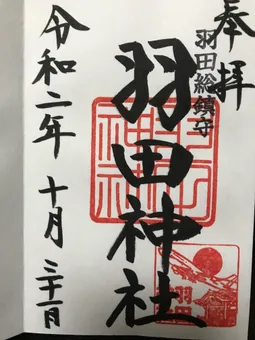 奉拝
羽田総鎮守
羽田神社
令和二年 十月 三十一日